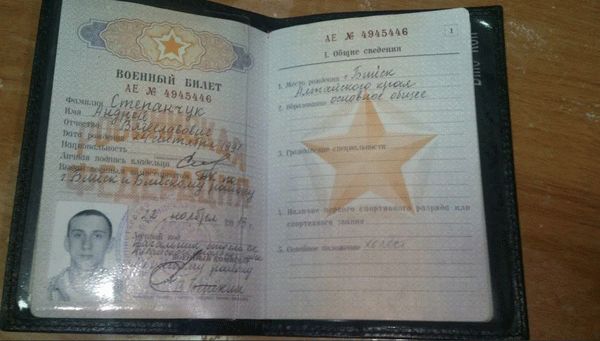 ВОЕННЫЙ БИЛЕТ
АЕ № 4945446
Фамилия Степанчук
Имя Андрей
Отчество Вячеславович
Дата рождения октября
Национальность
Личная подпись владельца
Выдан
г. Бийск и Бийскому району
22 ноября
Личный код
Начальник отдела
району
АЕ № 4945446
1
I. Общие сведения
1. Место рождения г. Бийск
Алтайского края
2. Образование основное общее
3. Гражданские специальности
4. Наличие первого спортивного разряда или
спортивного звания
5. Семейное положение холост